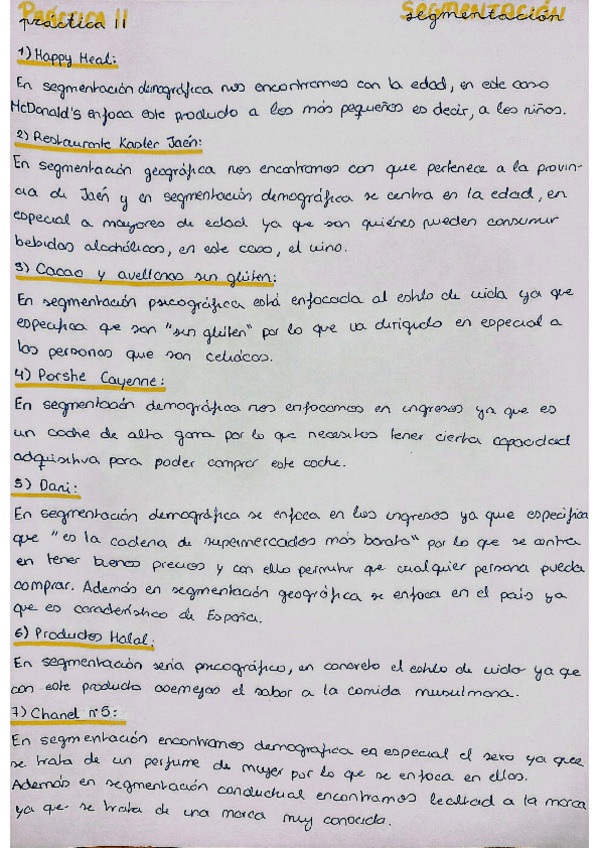 Práctica 11 Segmentación
1) Happy Meal:
En segmentación demográfica nos encontramos con la edad, en este caso
McDonald's enfoca este producto a los más pequeños es decir, a los niños.
2) Restaurante Kasler Jaén:
En segmentación geográfica nos encontramos con que pertenece a la provin-
cia de Jaén y en segmentación demográfica se centra en la edad, en
especial a mayores de edad ya que son quiénes pueden consumir
bebidas alcohólicas, en este caso, el vino.
3) Cacao y avellanas sin glúten:
En segmentación psicográfica está enfocada al estilo de vida ya que
especifica que son "sin glúten" por lo que va dirigido en especial a
las personas que son celiacos.
4) Porshe Cayenne:
En segmentación demográfica nos enfocamos en ingresos ya que es
un coche de alta gama por lo que necesitas tener cierta capacidad
adquisitiva para poder comprar este coche.
5) Dani:
En segmentación demográfica se enfoca en los ingresos ya que especifica
que "es la cadena de supermercados más barata" por lo que se centra
en tener buenos precios y con ello permitir que cualquier persona pueda
comprar. Además en segmentación geográfica se enfoca en el país ya
que es característico de España.
6) Productos Halal:
En segmentación seria psicográfico, en concreto el estilo de vida ya que
con este producto asemejas el sabor a la comida musulmana.
7) Chanel nº5:
En segmentación encontramos demografica en especial el sexo ya que
se trata de un perfume de mujer por lo que se enfoca en ellas.
Además en segmentación conductual encontramos lealtad a la marca
ya que se trata de una marca muy conocida.